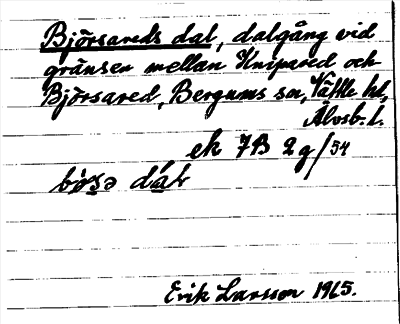 Björsareds dal, dalgång vid
gränsen mellan Knipared och
Björsared, Bergums sn, Vättle hd,
Älvsb. l.
ek 7B 2g/54
dal
Erik Larsson 1965.